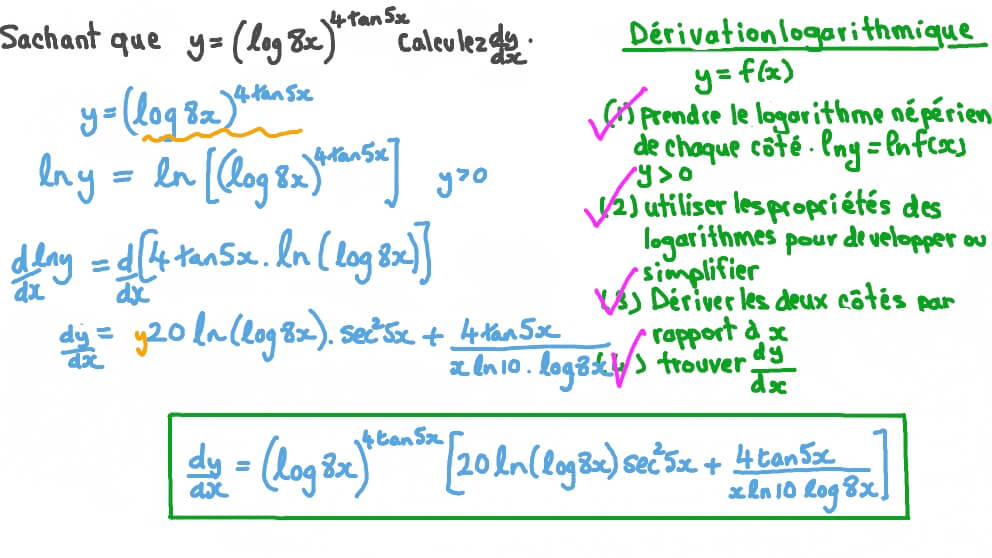 Sachant que y = (log 8x)^{4 tan 5x} Calculez dy/dx.
y = (log 8x)^{4 tan 5x}
ln y = ln [(log 8x)^{4 tan 5x}] y > 0
d/dx ln y = d/dx [4 tan 5x . ln (log 8x)]
dy/dx = y 20 ln (log 8x) . sec² 5x + 4 tan 5x / x ln 10 . log 8x
Dérivation logarithmique
y = f(x)
(1) prendre le logarithme népérien
de chaque côté . ln y = ln f(x)
y > 0
(2) utiliser les propriétés des
logarithmes pour developper ou
simplifier
(3) Dériver les deux côtés par
rapport à x
(4) trouver dy/dx
dy/dx = (log 8x)^{4 tan 5x} [20 ln (log 8x) sec² 5x + 4 tan 5x / x ln 10 log 8x]